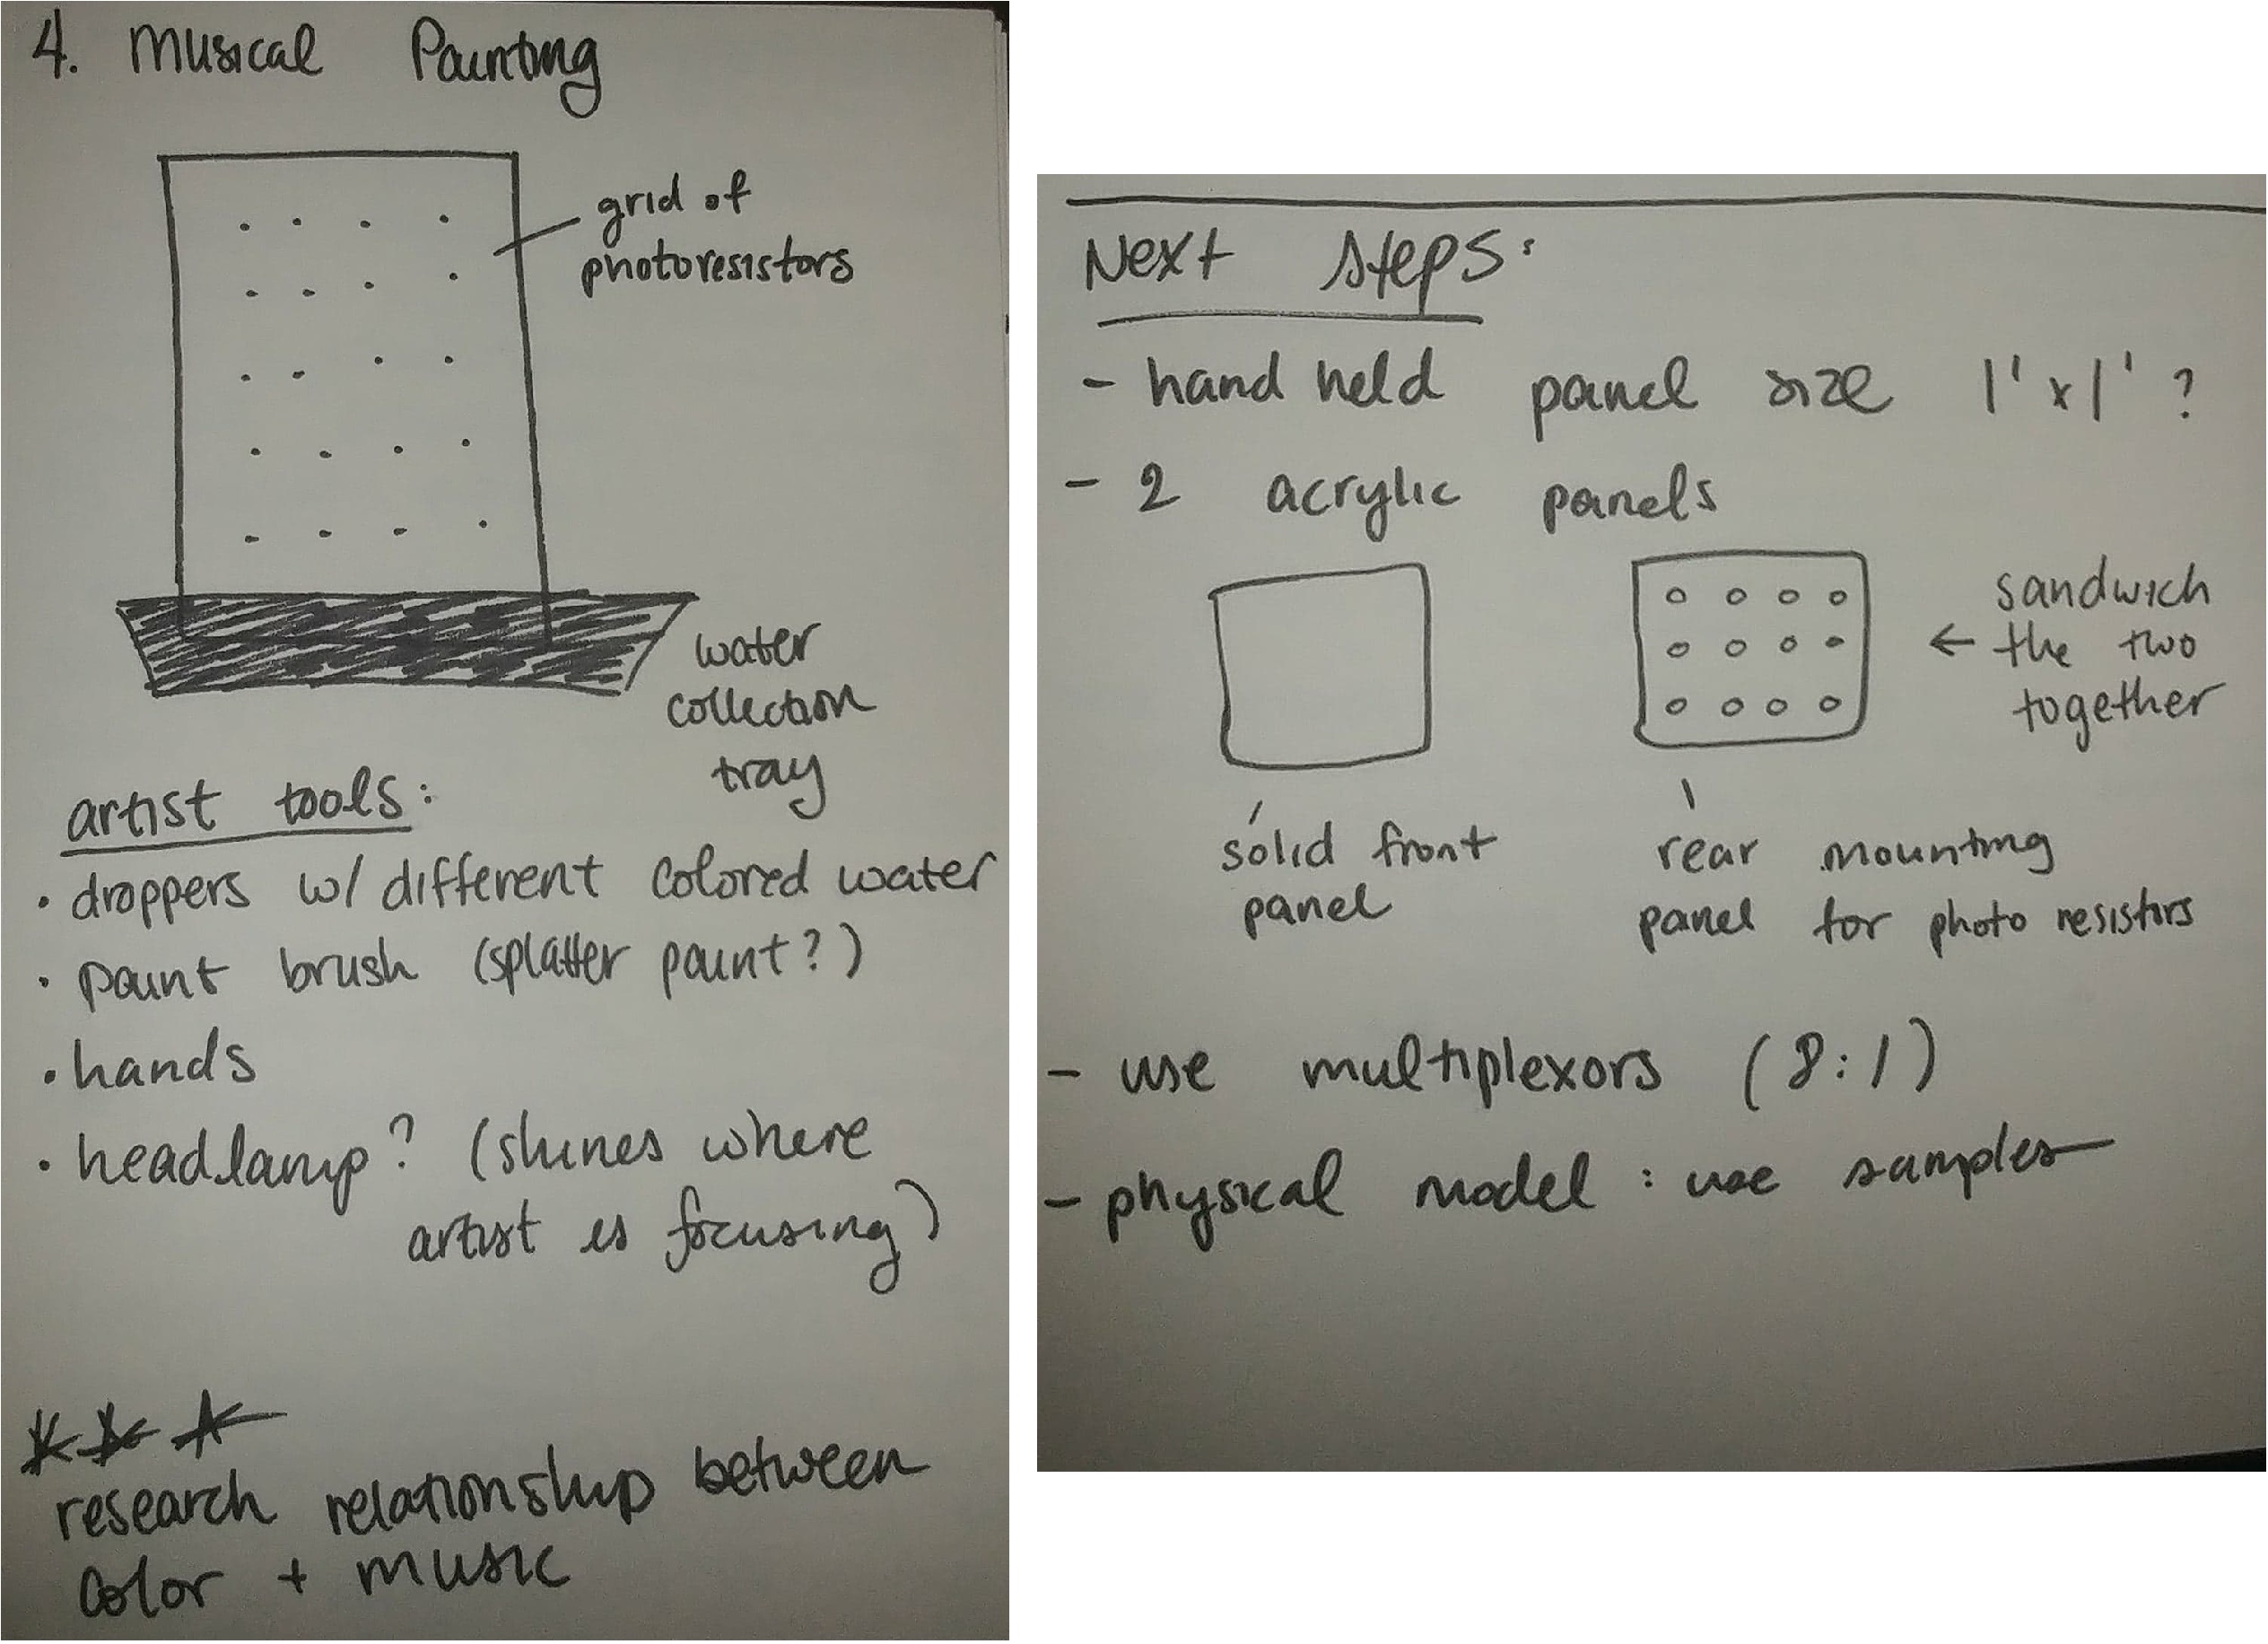 4. Musical Painting
grid of
photoresistors
water
collection
tray
artist tools:
• droppers w/ different colored water
• paint brush (splatter paint?)
• hands
• headlamp? (shines where
artist is focusing)
***
research relationship between
color + music
Next steps:
- hand held panel size 1' x 1' ?
- 2 acrylic panels
← sandwich
the two
together
solid front
panel
rear mounting
panel for photo resistors
- use multiplexors (8:1)
- physical model : use samples